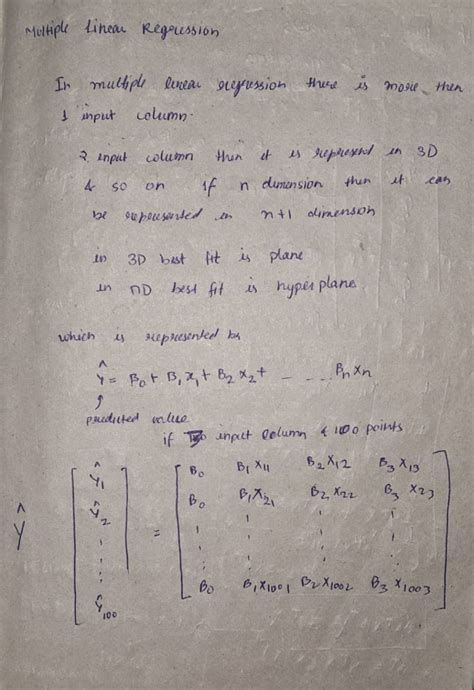 Multiple Linear Regression
In multiple linear regression there is more then
1 input column.
2 input column then it is represent in 3D
& so on if n dimension then it can
be represented in n+1 dimension
in 3D best fit is plane
in nD best fit is hyperplane
which is represented by
Ŷ = B₀ + B₁x₁ + B₂x₂ + - - - - - BₙXₙ
predicted value
if input column & 100 points
Ŷ [Ŷ₁ Ŷ₂ ⋮ Ŷ₁₀₀] = [B₀ B₁X₁₁ B₂X₁₂ B₃X₁₃
B₀ B₁X₂₁ B₂X₂₂ B₃X₂₃
⋮ ⋮ ⋮ ⋮
B₀ B₁X₁₀₀₁ B₂X₁₀₀₂ B₃X₁₀₀₃]